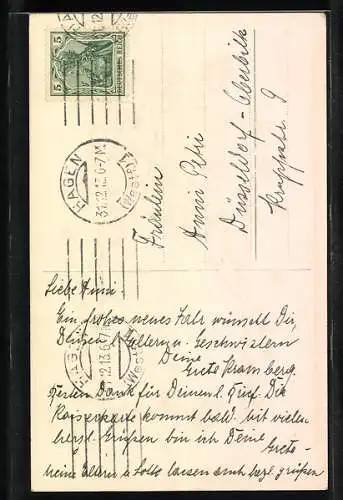 5 DEUTSCHES REICH 5
HAGEN
31.12.13. 6-7 N.
(Westf.)
Fräulein
Anni Petri
Düsseldorf-Oberbilk
Kruppstr. 9
HAGEN
12.13. 6-7 N.
(Westf.)
Liebe Anni.
Ein frohes neues Jahr wünscht Dir,
Deinen l. Eltern u. Geschwistern
Deine
Grete Kramberg.
Besten Dank für Deinen l. Brief. Die
Kaiserkarte kommt bald. Mit vielen
herzl. Grüßen bin ich Deine
Grete
Meine Eltern u. lassen auch herzl. grüßen